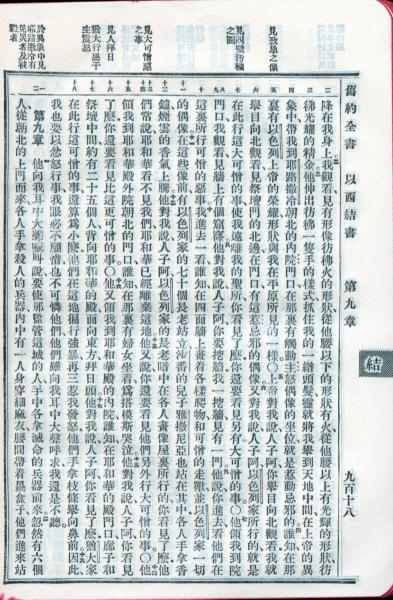 舊約全書　以西結書　第九章　九百十八
結
見致忌之像
見四壁污穢之圖
見大可憎惡之事
見人拜日
主震怒
於異象中見
耶路撒冷有
民受害及被
殺者
降在我身上我觀看見有形像彷彿火的形狀從他腰以下的形狀有火從他腰以上有光輝的形狀彷
彿光耀的精金他伸出彷彿一隻手的樣式抓住我的一綹頭髮靈就將我舉到天地中間在上帝的異
象中帶我到耶路撒冷朝北的內院門口在那裏有觸動主怒偶像的坐位就是惹動忌邪的誰知在那
裏有以色列上帝的榮耀形狀與我在平原所見的一樣○上帝對我說人子阿你舉目向北觀看我就
舉目向北觀看見祭壇門的北邊在門口有這惹忌邪的偶像又對我說人子阿以色列家所行的就是
在此行這大可憎的事使我遠離我的聖所你看見了麼你還要看見另有大可憎的事○他領我到院
門口我觀看見牆上有個窟窿他對我說人子阿你要挖牆我一挖牆見有一門他說你進去看他們在
這裏所行可憎的惡事我進去一看誰知在四面牆上畫着各樣爬物和可憎的走獸並以色列家一切
的偶像在這些像前有以色列家的七十個長老站立沙番的兒子雅撒尼亞也站在其中各人手拿香
爐煙雲的香氣上騰他對我說人子阿以色列家的長老暗中在各人畫像屋裏所行的你看見了麼他
們常說耶和華看不見我們耶和華已經離棄這地他又說你還要看見他們另外行大可憎的事○他
領我到耶和華殿外院朝北的門口誰知在那裏有婦女坐着爲搭模斯哭泣他對我說人子阿你看見
了麼你還要看見比這更可憎的事○他又領我到耶和華殿的內院誰知在耶和華的殿門口廊子和
祭壇中間約有二十五個人背向耶和華的殿面向東方拜日頭他對我說人子阿你看見了麼猶大家
在此行這可憎的事還算爲小麼他們在這地橫行強暴再三惹我發怒他們手拿枝條舉向鼻前因此
我也要以忿怒行事我眼必不顧惜也不可憐他們他們雖向我耳中大聲呼求我還是不聽
第九章　他向我耳中大聲喊叫說要使那監管這城的人手中各拿滅命的兵器前來忽然有六個
人從朝北的上門而來各人手拿殺人的兵器內中有一人身穿細麻衣腰間帶着墨盒子他們進來站